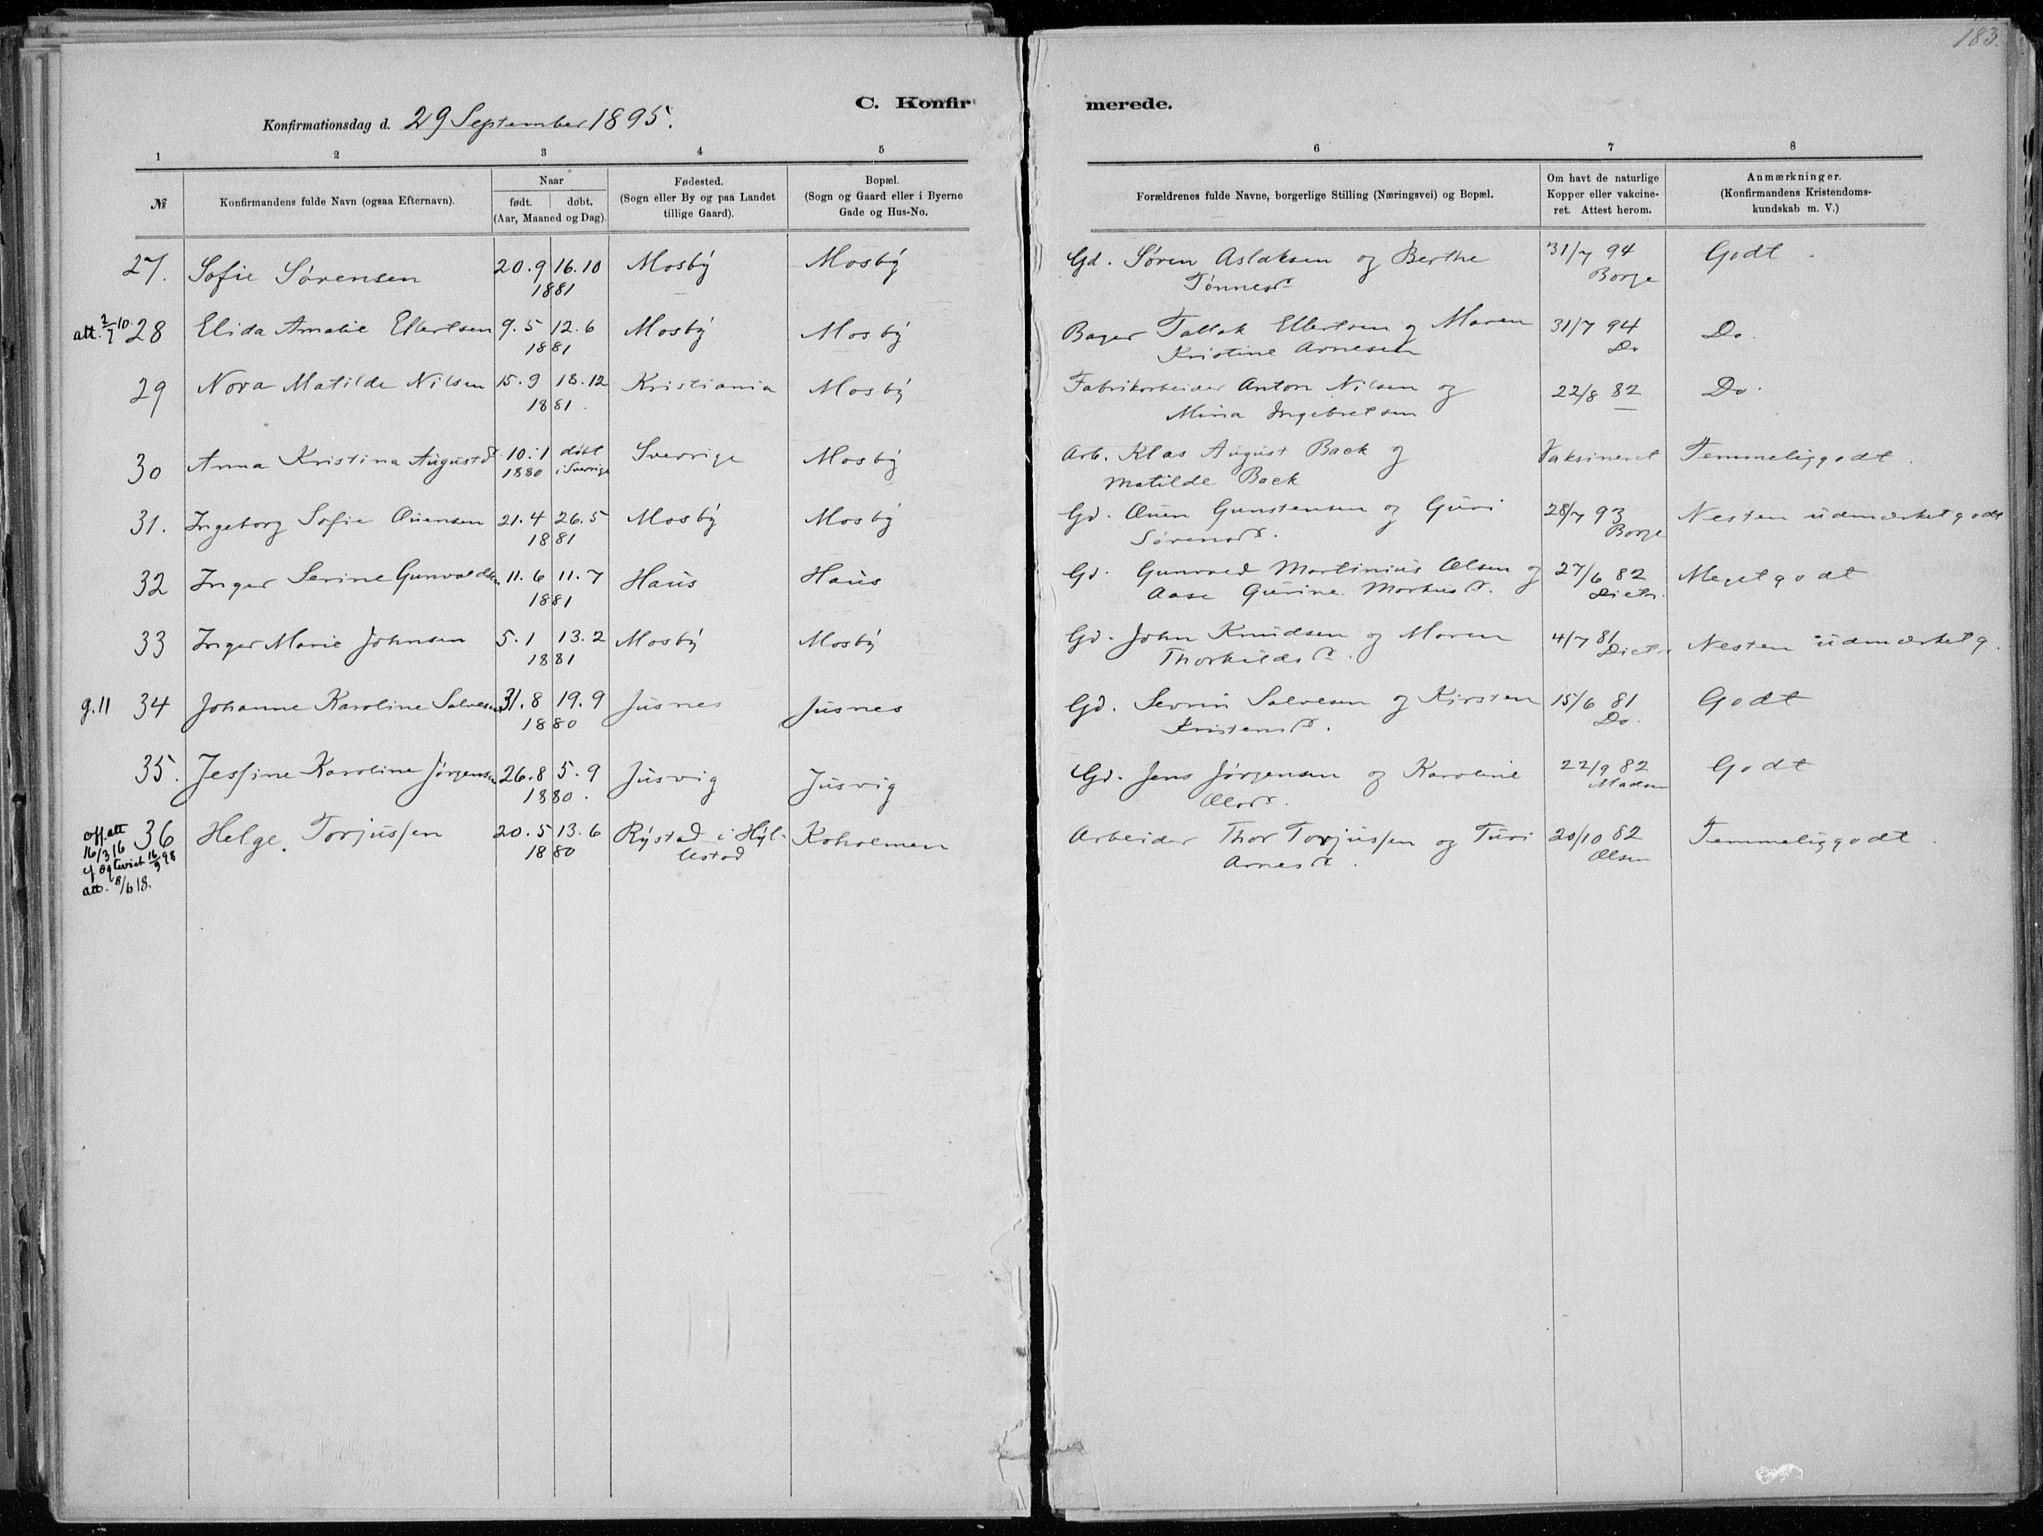 183.
C. Konfirmerede.
Konfirmationsdag d. 29 September 1895.
1 2 3 4 5 6 7 8
№
Konfirmandens fulde Navn (ogsaa Efternavn).
Naar
født. døbt.
(Aar, Maaned og Dag).
Fødested.
(Sogn eller By og paa Landet
tillige Gaard).
Bopæl.
(Sogn og Gaard eller i Byerne
Gade og Hus-No.
Forældrenes fulde Navne, borgerlige Stilling (Næringsvei) og Bopæl.
Om havt de naturlige
Kopper eller vakcine-
ret. Attest herom.
Anmærkninger.
(Konfirmandens Kristendoms-
kundskab m. V.)
27. Sofie Sørensen 20.9 16.10 Mosby Mosby Gd. Søren Aslaksen og Berthe 31/7 94 Godt.
1881 Tønnesd. Borge
att. 2/7 10 28 Elida Amalie Ellertsen 9.5 12.6 Mosby Mosby Bager Tallak Ellertsen og Maren 31/7 94 Do.
1881 Kristine Arnesen Do
29 Nora Matilde Nilsen 15.9 18.12 Kristiania Mosby Fabrikarbeider Anton Nilsen og 22/8 82 Do.
1881. Mina Ingebretsen
30 Anna Kristina Augustd. 10.1 døbt Sverrige Mosby Arb. Klas August Back og Vaksineret Temmelig godt.
1880 i Sverrige Matilde Back
31. Ingeborg Sofie Ouensen 21.4 26.5 Mosby Mosby Gd. Ouen Gunstensen og Guri 28/7 93 Nesten udmærket godt
1881 Sørensd. Borge
32 Inger Serine Gunvaldsen 11.6 11.7 Haus Haus Gd. Gunvald Martinius Olsen og 27/6 82 Meget godt
1881 Aase Gurine Markusd. Dietr.
33 Inger Marie Johnsen 5.1 13.2 Mosby Mosby Gd. John Knudsen og Maren 4/7 81 Nesten udmærket g.
1881 Thorkildsd. Dietr
g.11 34 Johanne Karoline Salvesen 31.8 19.9 Jusnes Jusnes Gd. Sevrin Salvesen og Kirsten 15/6 81 Godt
1880 Kristensd. Do.
35. Jessine Karoline Jørgensen 26.8 5.9 Jusvig Jusvig Gd. Jens Jørgensen og Karoline 22/9 82 Godt
1880. Olsd. Madsen
off. att 36 Helge Torjussen 20.5 13.6 Rystad i Hyl- Koholmen Arbeider Thor Torjussen og Turi 20/10 82 Temmelig godt.
16/3 16 1880 lestad Arnesd. Olsen
att. 8/6 18.